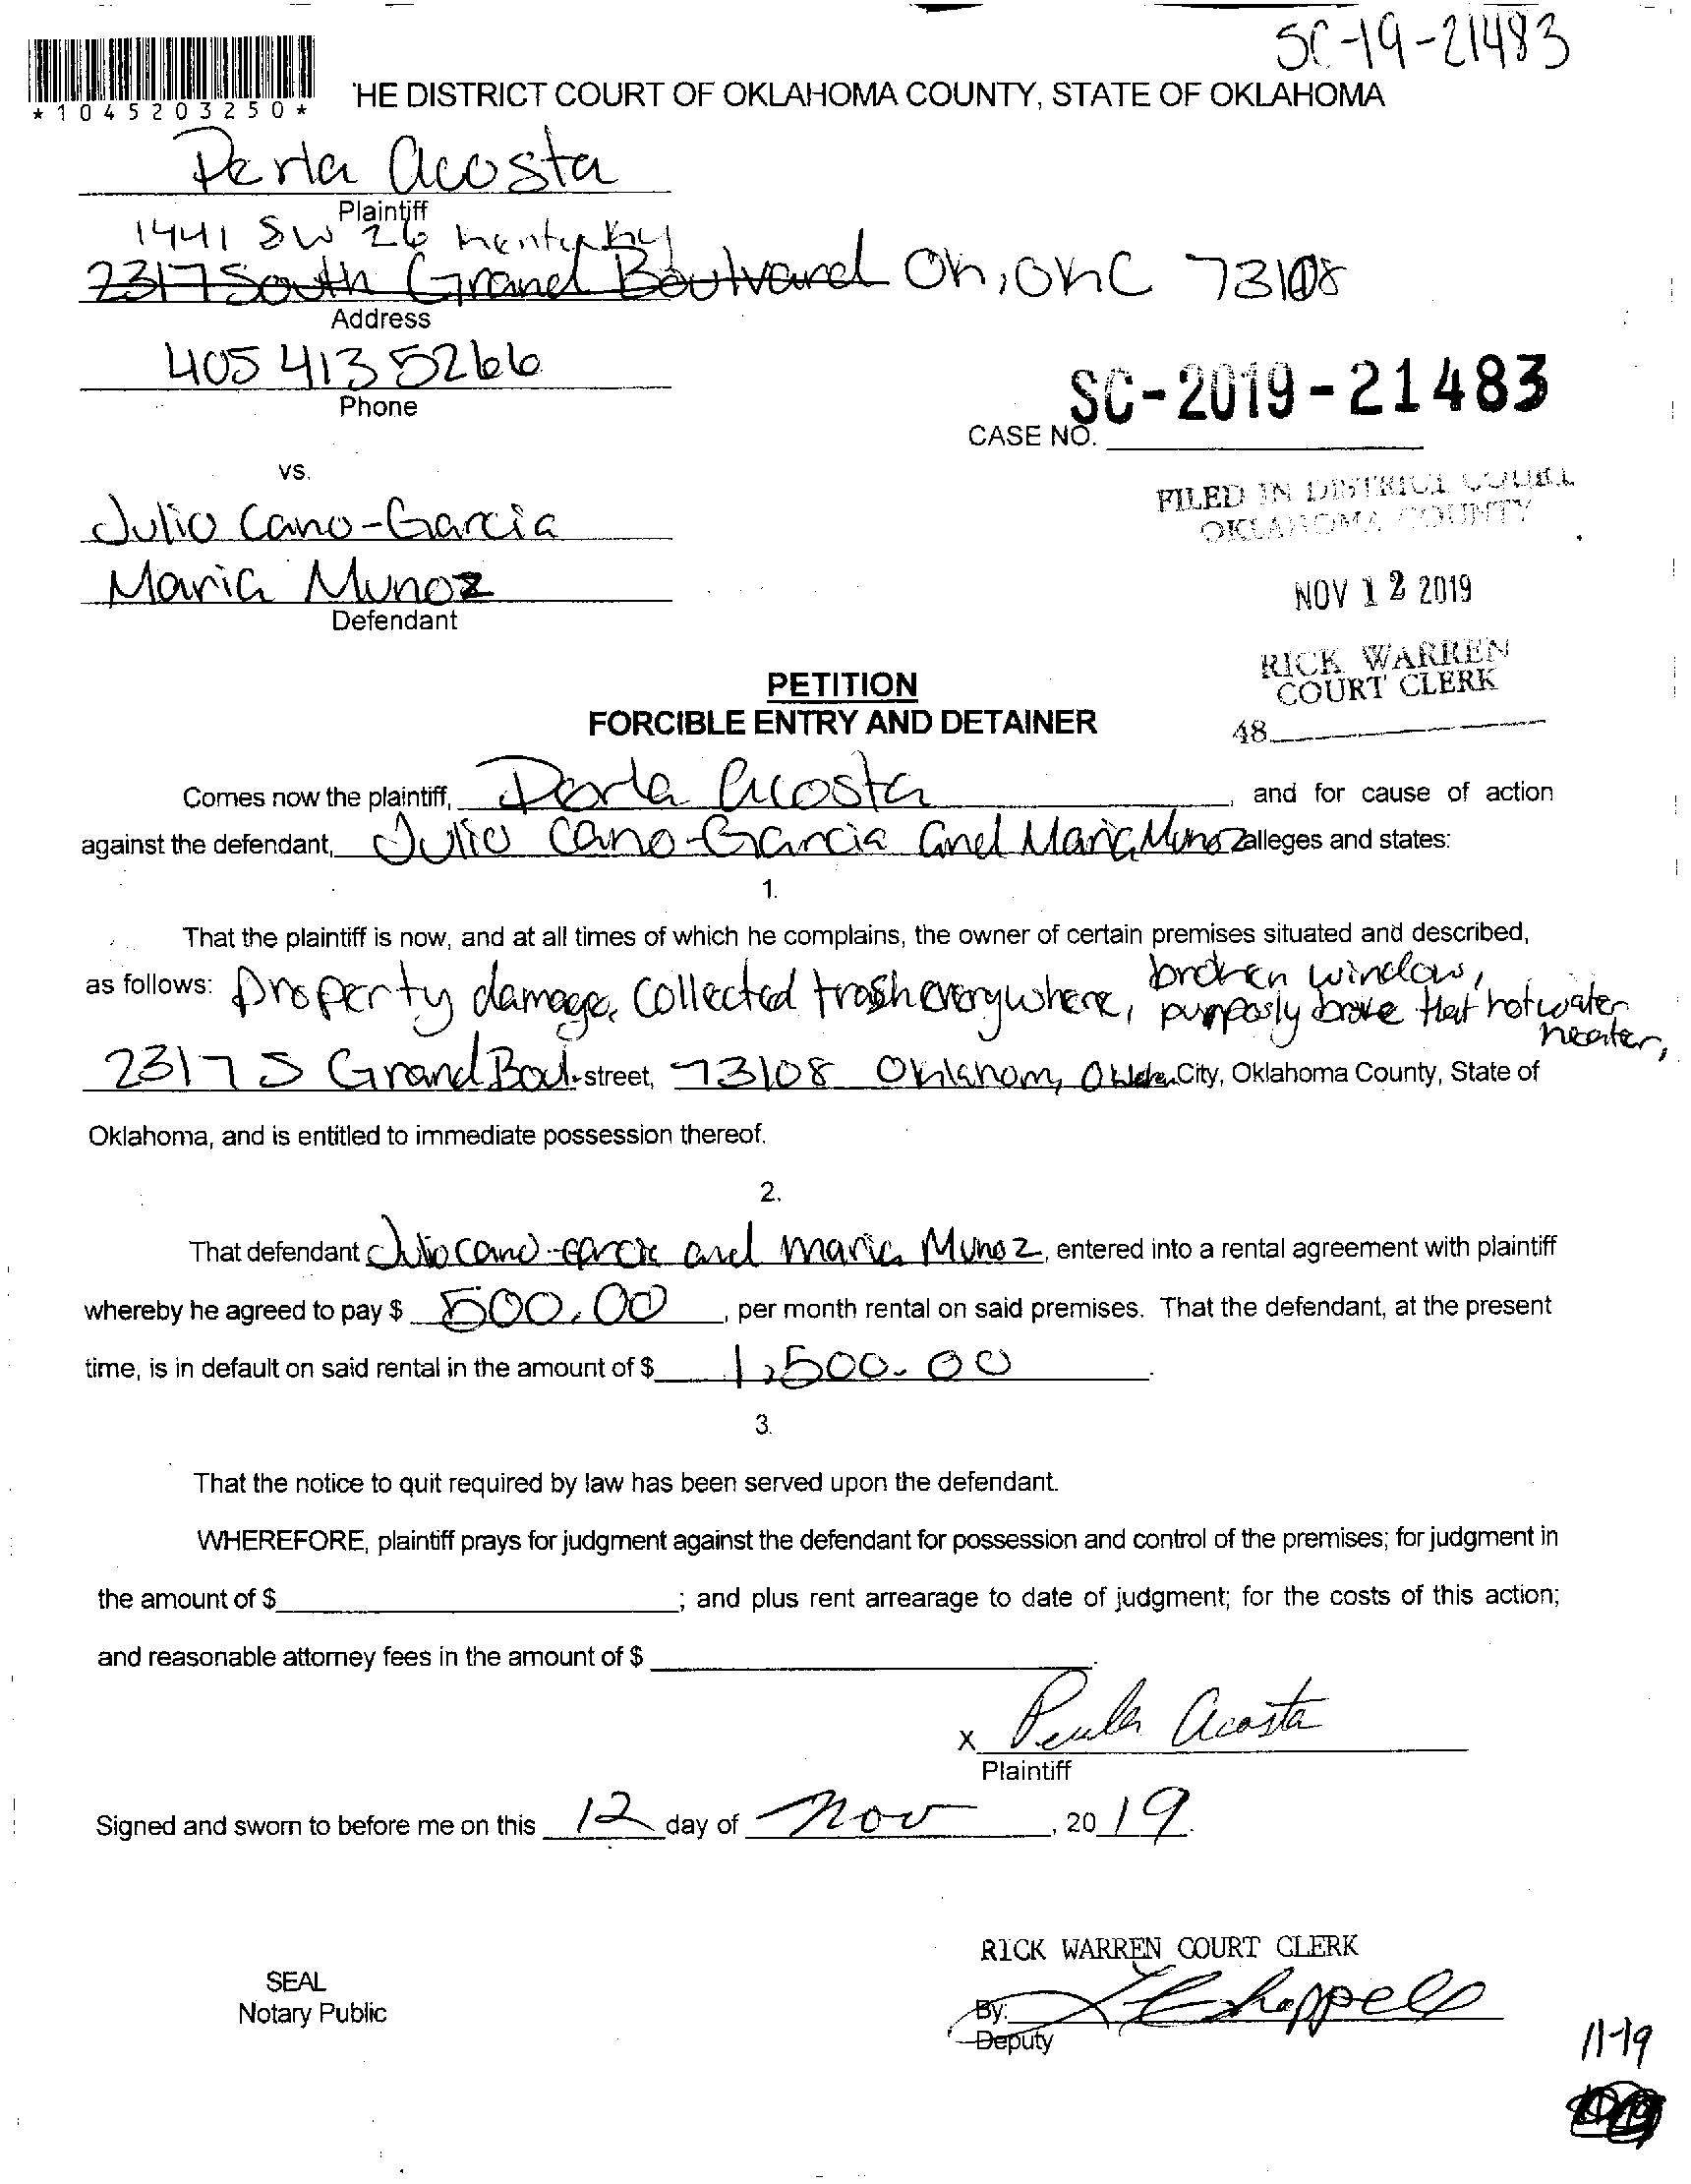 SC-19-21483
*1045203250*
'HE DISTRICT COURT OF OKLAHOMA COUNTY, STATE OF OKLAHOMA
Perla Acosta
Plaintiff
1441 SW 26 Kentucky
2317 South Grand Boulvard Ok, OKC 73108
Address
405 413 5266
Phone
SC-2019-21483
CASE NO.
vs.
Julio Cano-Garcia
Maria Munoz
Defendant
FILED IN DISTRICT COURT
OKLAHOMA COUNTY
NOV 12 2019
RICK WARREN
COURT CLERK
48
PETITION
FORCIBLE ENTRY AND DETAINER
Comes now the plaintiff, Perla Acosta, and for cause of action
against the defendant, Julio Cano-Garcia and Maria Munoz alleges and states:
1.
That the plaintiff is now, and at all times of which he complains, the owner of certain premises situated and described,
as follows: Property damage, collected trash everywhere, broken window, purposly broke that hot water heater,
2317 S Grand Boul. street, 73108 Oklahom, City, Oklahoma County, State of
Oklahoma, and is entitled to immediate possession thereof.
2.
That defendant Julio Cano-Garcia and Maria Munoz, entered into a rental agreement with plaintiff
whereby he agreed to pay $ 500.00, per month rental on said premises. That the defendant, at the present
time, is in default on said rental in the amount of $ 1,500.00.
3.
That the notice to quit required by law has been served upon the defendant.
WHEREFORE, plaintiff prays for judgment against the defendant for possession and control of the premises; for judgment in
the amount of $ ; and plus rent arrearage to date of judgment; for the costs of this action;
and reasonable attorney fees in the amount of $ .
x Perla Acosta
Plaintiff
Signed and sworn to before me on this 12 day of Nov, 2019.
RICK WARREN COURT CLERK
SEAL
Notary Public
By: Chappell
Deputy
11-19